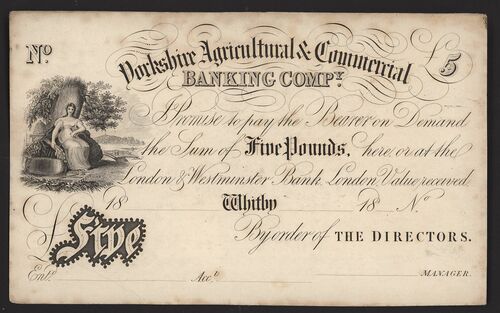 Nº
Yorkshire Agricultural & Commercial
£5
BANKING COMPY.
I Promise to pay the Bearer on Demand
the Sum of Five Pounds, here, or at the
London & Westminster Bank, London, Value received
18 Whitby 18 Nº
£Five
By order of THE DIRECTORS.
Entd. Acct. MANAGER.